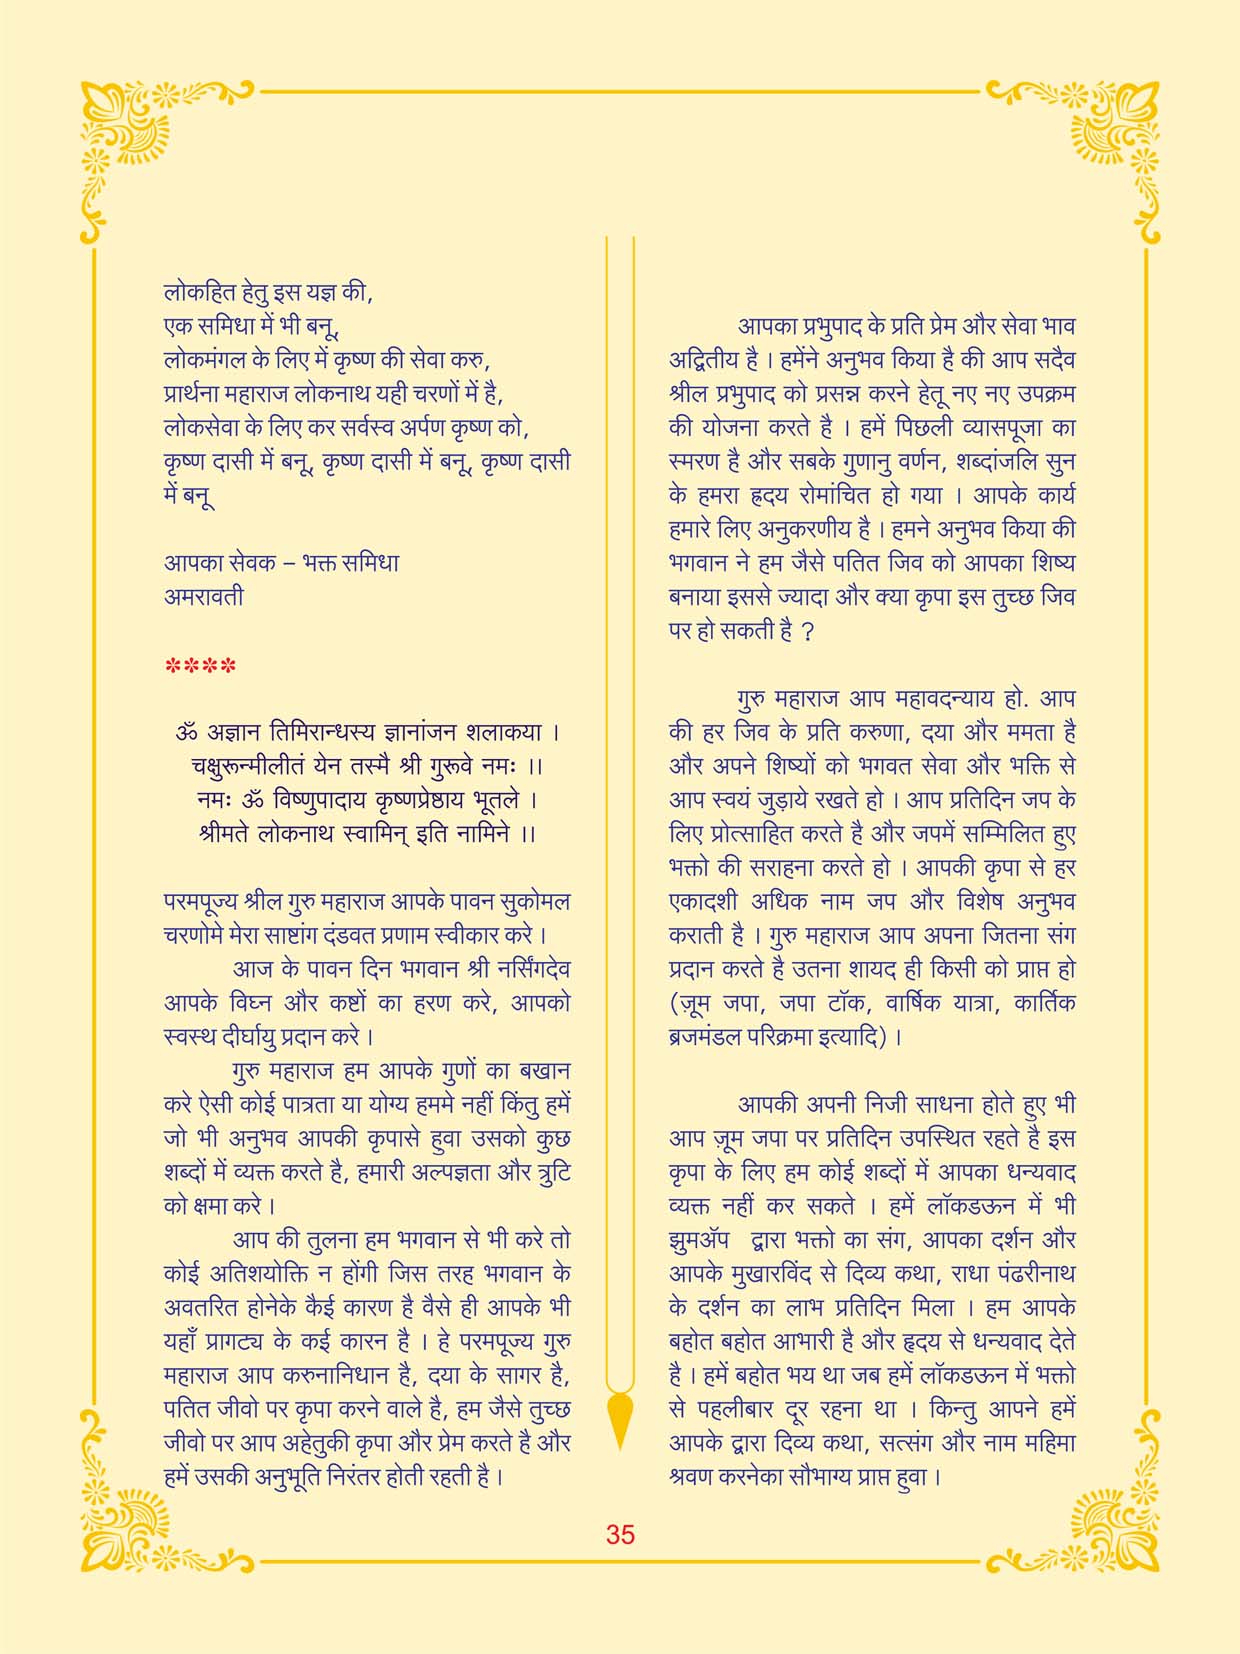 लोकहित हेतु इस यज्ञ की,
एक समिधा में भी बनू,
लोकमंगल के लिए में कृष्ण की सेवा करु,
प्रार्थना महाराज लोकनाथ यही चरणों में है,
लोकसेवा के लिए कर सर्वस्व अर्पण कृष्ण को,
कृष्ण दासी में बनू, कृष्ण दासी में बनू, कृष्ण दासी
में बनू
आपका सेवक – भक्त समिधा
अमरावती
****
ॐ अज्ञान तिमिरान्धस्य ज्ञानांजन शलाकया ।
चक्षुरून्मीलीतं येन तस्मै श्री गुरूवे नमः ।।
नमः ॐ विष्णुपादाय कृष्णप्रेष्ठाय भूतले ।
श्रीमते लोकनाथ स्वामिन् इति नामिने ।।
परमपूज्य श्रील गुरु महाराज आपके पावन सुकोमल
चरणोमे मेरा साष्टांग दंडवत प्रणाम स्वीकार करे ।
आज के पावन दिन भगवान श्री नर्सिंगदेव
आपके विघ्न और कष्टों का हरण करे, आपको
स्वस्थ दीर्घायु प्रदान करे ।
गुरु महाराज हम आपके गुणों का बखान
करे ऐसी कोई पात्रता या योग्य हममे नहीं किंतु हमें
जो भी अनुभव आपकी कृपासे हुवा उसको कुछ
शब्दों में व्यक्त करते है, हमारी अल्पज्ञता और त्रुटि
को क्षमा करे ।
आप की तुलना हम भगवान से भी करे तो
कोई अतिशयोक्ति न होंगी जिस तरह भगवान के
अवतरित होनेके कैई कारण है वैसे ही आपके भी
यहाँ प्रागट्य के कई कारन है । हे परमपूज्य गुरु
महाराज आप करुनानिधान है, दया के सागर है,
पतित जीवो पर कृपा करने वाले है, हम जैसे तुच्छ
जीवो पर आप अहेतुकी कृपा और प्रेम करते है और
हमें उसकी अनुभूति निरंतर होती रहती है ।
आपका प्रभुपाद के प्रति प्रेम और सेवा भाव
अद्वितीय है । हमेंने अनुभव किया है की आप सदैव
श्रील प्रभुपाद को प्रसन्न करने हेतू नए नए उपक्रम
की योजना करते है । हमें पिछली व्यासपूजा का
स्मरण है और सबके गुणानु वर्णन, शब्दांजलि सुन
के हमरा ह्रदय रोमांचित हो गया । आपके कार्य
हमारे लिए अनुकरणीय है । हमने अनुभव किया की
भगवान ने हम जैसे पतित जिव को आपका शिष्य
बनाया इससे ज्यादा और क्या कृपा इस तुच्छ जिव
पर हो सकती है ?
गुरु महाराज आप महावदन्याय हो. आप
की हर जिव के प्रति करुणा, दया और ममता है
और अपने शिष्यों को भगवत सेवा और भक्ति से
आप स्वयं जुड़ाये रखते हो । आप प्रतिदिन जप के
लिए प्रोत्साहित करते है और जपमें सम्मिलित हुए
भक्तो की सराहना करते हो । आपकी कृपा से हर
एकादशी अधिक नाम जप और विशेष अनुभव
कराती है । गुरु महाराज आप अपना जितना संग
प्रदान करते है उतना शायद ही किसी को प्राप्त हो
(ज़ूम जपा, जपा टॉक, वार्षिक यात्रा, कार्तिक
ब्रजमंडल परिक्रमा इत्यादि) ।
आपकी अपनी निजी साधना होते हुए भी
आप ज़ूम जपा पर प्रतिदिन उपस्थित रहते है इस
कृपा के लिए हम कोई शब्दों में आपका धन्यवाद
व्यक्त नहीं कर सकते । हमें लॉकडऊन में भी
झुमॲप द्वारा भक्तो का संग, आपका दर्शन और
आपके मुखारविंद से दिव्य कथा, राधा पंढरीनाथ
के दर्शन का लाभ प्रतिदिन मिला । हम आपके
बहोत बहोत आभारी है और हृदय से धन्यवाद देते
है । हमें बहोत भय था जब हमें लॉकडऊन में भक्तो
से पहलीबार दूर रहना था । किन्तु आपने हमें
आपके द्वारा दिव्य कथा, सत्संग और नाम महिमा
श्रवण करनेका सौभाग्य प्राप्त हुवा ।
35